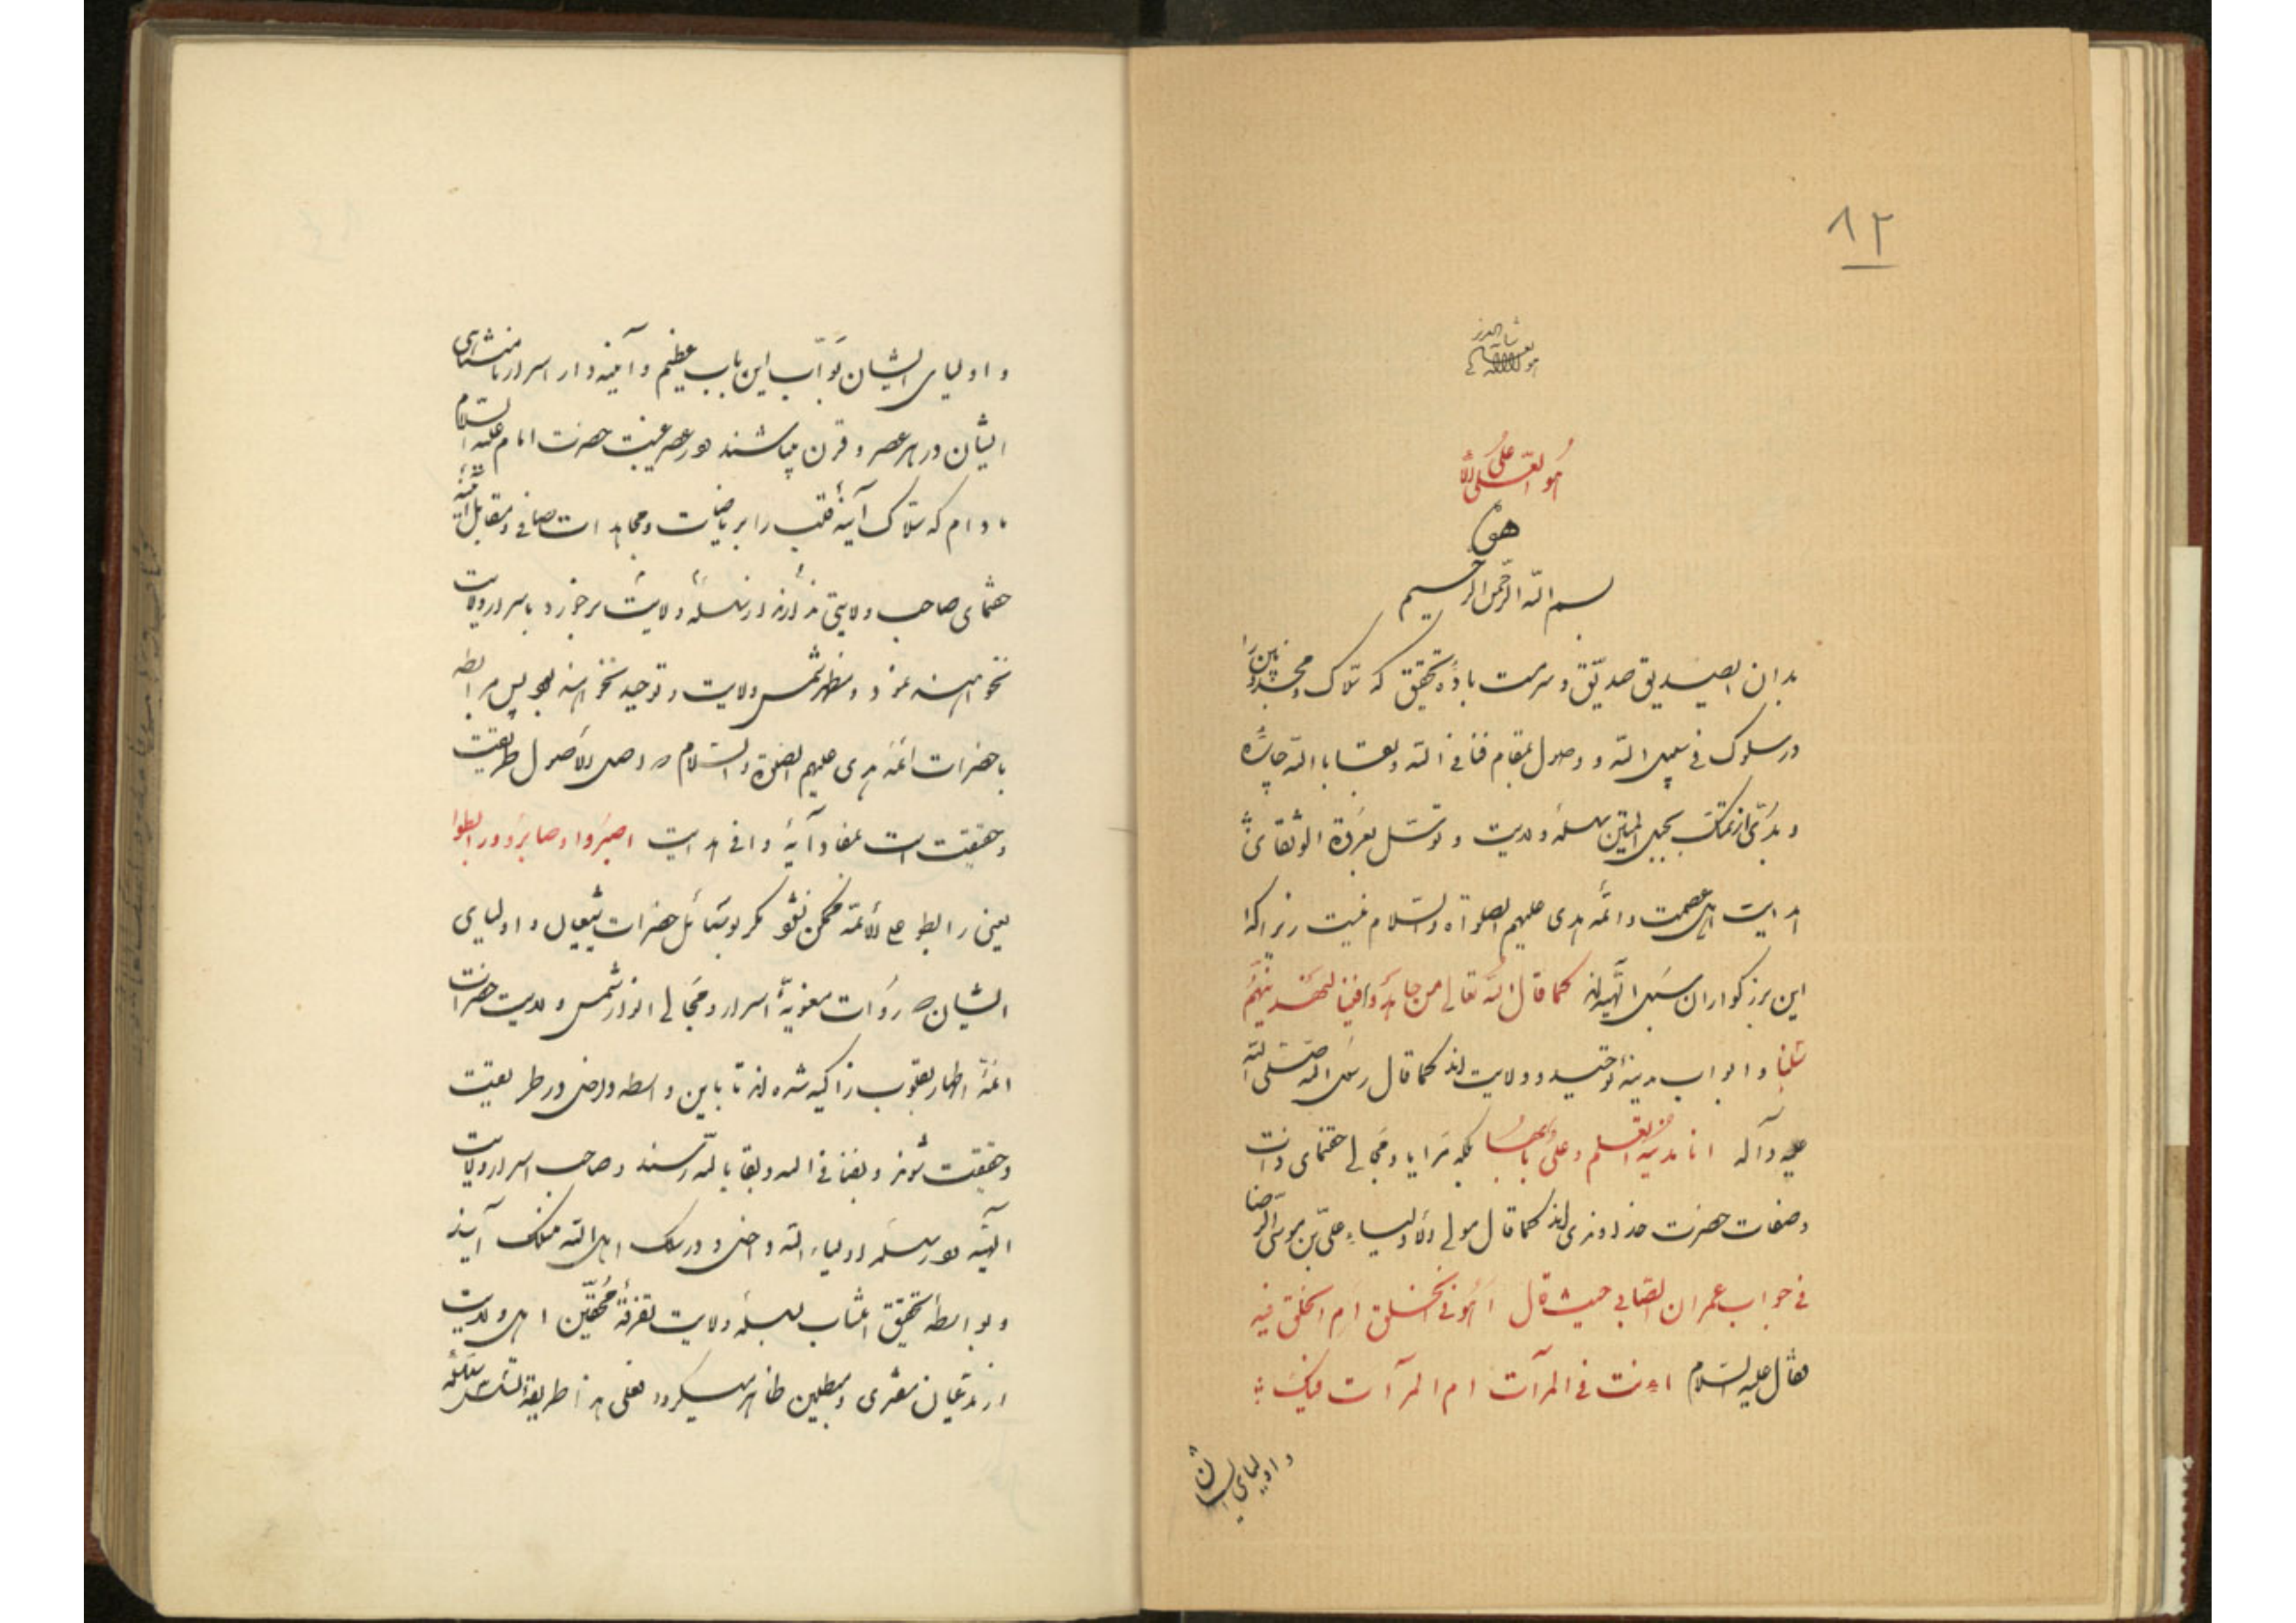 ۸۲
هو العلی الاعلی
هو
بسم الله الرحمن الرحیم
بدان ای صدیق صدیق و سرمست بادهٔ تحقیق که سلاک و مجذوبین را
در سلوک فی سبیل الله و وصول بمقام فنا فی الله و بقا بالله چاره
و بدّی از تمسّک بحبل المتین سلسلهٔ ولایت و توسّل بعروة الوثقای
هدایت اهل عصمت و ائمه هدی علیهم الصلواة والسّلام نیست زیرا که
این بزرگواران سبل الهیه‌اند كما قال الله تعالی من جاهدوا فینا لنهدینهم
سبلنا و ابواب مدینهٔ توحید و ولایت‌اند كما قال رسول الله صلی الله
علیه و آله انا مدینة العلم و علیٌ بابها بلکه مرایا و مجالی حقنمای ذات
و صفات حضرت خداوندی‌اند كما قال مولی الاولیاء علیّ بن موسی الرضا
فی جواب عمران الصّابی حیث قال أهو فی الخلق ام الخلق فیه
فقال علیه السّلام اءنت فی المرآت ام المرآت فیک
و اولیای ایشان
و اولیای ایشان بوّاب این باب عظیم و آینه‌دار اسرار نامتناهی
ایشان در هر عصر و قرن میباشند در عصر غیبت حضرت امام علیه السّلام
مادام که سلاک آینهٔ قلب را بریاضات و مجاهدات صافی و مقابل آینهٔ
حقنمای صاحب ولایتی ندارند از سلسلهٔ ولایت برخورد باسرار ولایت
نخواهند نمود و مظهر شمس ولایت و توحید نخواهند بود پس مرابطه
با حضرات ائمه هدی علیهم الصلوة والسّلام که اصل الاصول طریقت
و حقیقت است بمفاد آیهٔ وافی هدایت اصبروا و صابروا و رابطوا
یعنی رابطوا علی الائمّه ممکن نشود مگر بوسائل حضرات شیعیان و اولیای
ایشان که روات معنویهٔ اسرار و مجالی انوار شمس ولایت حضرات
ائمّهٔ اطهار بقلوب زاکیه شده‌اند تا باین واسطه داخل در طریقت
و حقیقت شوند و بفنا فی الله و بقا بالله رسند و صاحب اسرار ولایت
الهیّه در سلسلهٔ اولیاء الله داخل و در سلک اهل الله منسلک آیند
و بواسطهٔ تحقیق انتساب بسلسلهٔ ولایت تفرقهٔ محقّین اهل ولایت
از مدّعیان مفتری و مبطلین ظاهر میگردد فعلی هذا طریقهٔ